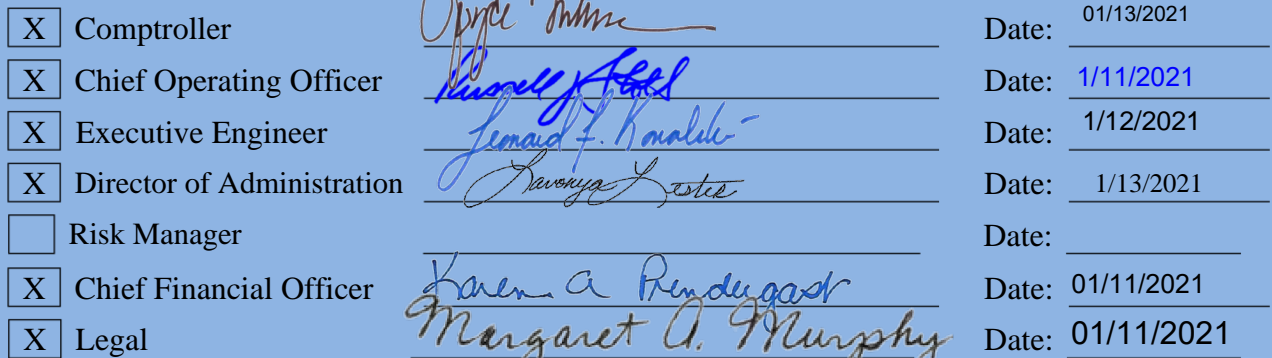 X Comptroller Date: 01/13/2021
X Chief Operating Officer Russell J Date: 1/11/2021
X Executive Engineer Leonard F. Kowalski Date: 1/12/2021
X Director of Administration Lavonya Lester Date: 1/13/2021
Risk Manager Date:
X Chief Financial Officer Karen A Prendergast Date: 01/11/2021
X Legal Margaret A. Murphy Date: 01/11/2021